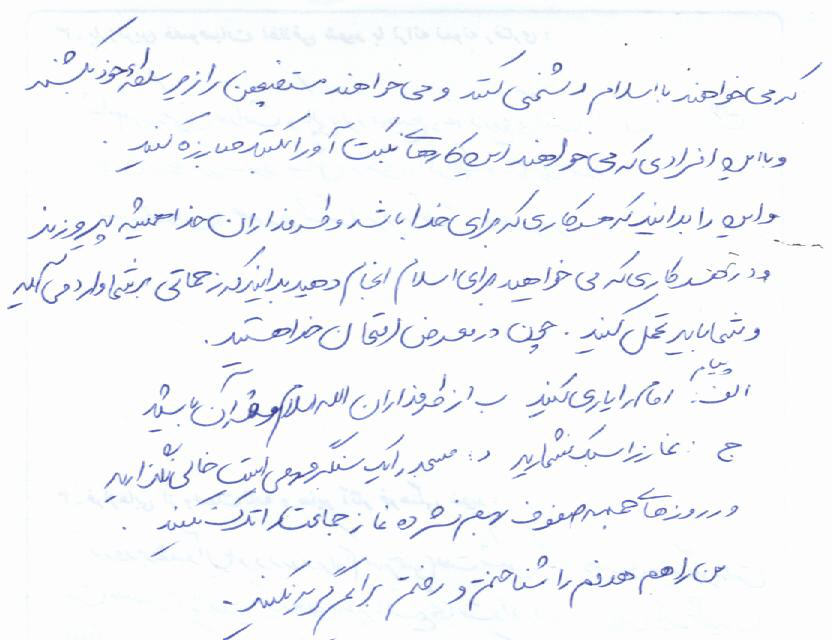 که می‌خواهند با اسلام دشمنی کنند و می‌خواهند مستضعفین را از زیر سلطهٔ خود بکشند
و با این افرادی که می‌خواهند این کارهای نکبت آور را بکنند مبارزه کنید.
و این را بدانید که هر کاری که برای خدا باشد و طرفداران خدا همیشه پیروزند
و در هر کاری که می‌خواهید برای اسلام انجام دهید بدانید که زحماتی بر شما وارد می‌آید
و شما باید تحمل کنید. چون در معرض امتحان خدا هستید.
الف: پیام امام را یاری کنید ب از طرفداران الله اسلام و قرآن باشید
ج: نماز را سبک نشمارید د: مسجد را که سنگر است خالی نگذارید
و در روزهای جمعه صفوف بهم فشرده نماز جماعت را ترک نکنید.
من راهم هدفم را شناختم و رفتم برایم گریه نکنید.